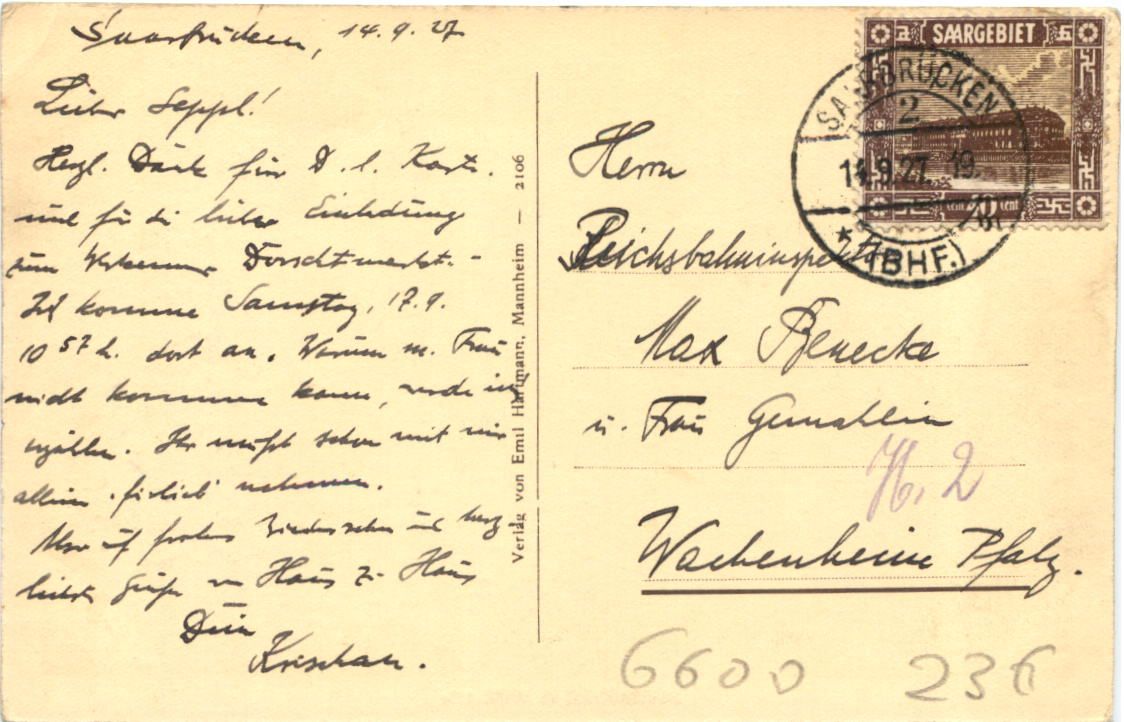 Saarbrücken, 14.9.27
Lieber Seppl!
Herzl. Dank für D. l. Karte.
und für die liebe Einladung
zum Wachenheimer
Ich komme Samstag, 17.9.
10 57 h. dort an. Warum m. Frau
nicht kommen kann, werde ich
erzählen. Ihr müßt schon mit mir
allein
Also auf frohes Wiedersehen und herz
lichste Grüße von Haus zu Haus
Dein
Krischan.
Verlag von Emil Hartmann, Mannheim — 2106
SAARGEBIET
SAARBRÜCKEN
2
14.9.27. 19
* (BHF.)
Herrn
Reichsbahninspektor
Max Benecke
u. Frau Gemahlin
Wachenheim Pfalz.
6600 236